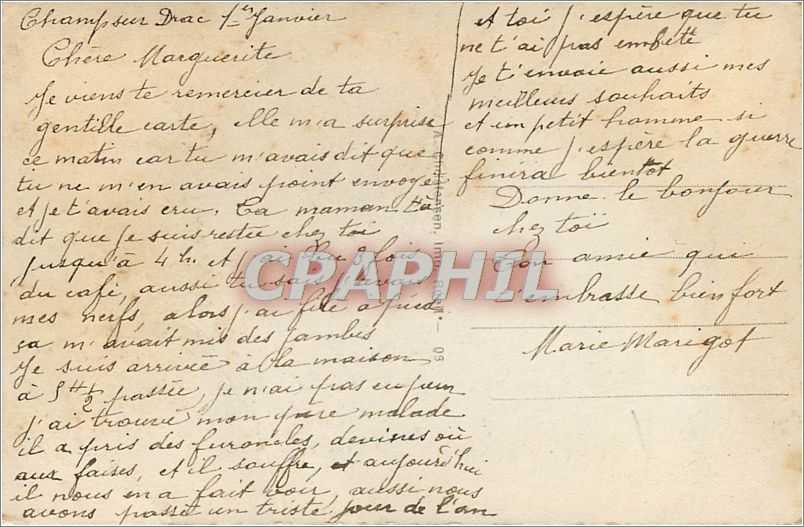 Champ sur Drac 1er Janvier
Chère Marguerite
Je viens te remercier de ta
gentille carte, elle m'a surprise
ce matin car tu m'avais dit que
tu ne m'en avais point envoyé
et je t'avais cru. Ta maman t'a
dit que je suis restée chez toi
jusqu'à 4 h. et j'ai bu 3 fois
du café, aussi tu sais j'avais
mes nerfs, alors j'ai filé à pied
ça m'avait mis des jambes
Je suis arrivée à la maison
à 5 H 1/2 passée, je n'ai pas eu peur
j'ai trouvé mon père malade
il a pris des furoncles, devines où
aux faises, et il souffre, et aujourd'hui
il nous en a fait voir, aussi nous
avons passé un triste jour de l'an
et toi j'espère que tu
ne t'ai pas embetté
Je t'envoie aussi mes
meilleurs souhaits
et un petit homme si
comme j'espère la guerre
finira bientot
Donne le bonjour
chez toï
Ton amie qui
t'embrasse bien fort
Marie Marigot
CPAPHIL